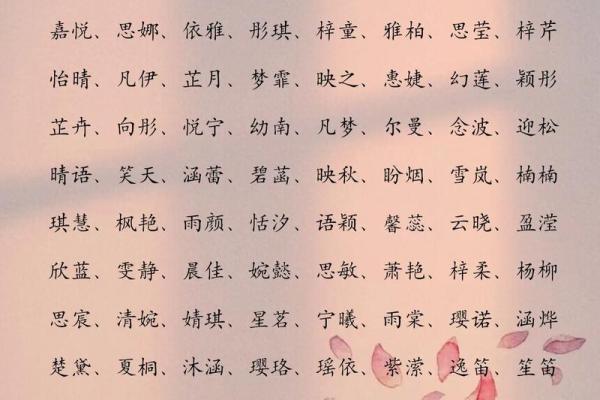 嘉悦、思娜、依雅、彤琪、梓童、雅柏、思莹、梓芹
怡晴、凡伊、芷月、梦霏、映之、惠婕、幻莲、颖彤
芷卉、向彤、悦宁、幼南、凡梦、尔曼、念波、迎松
晴语、笑天、涵蕾、碧菡、映秋、盼烟、雪岚、楠楠
琪慧、枫艳、雨颜、恬汐、语颖、馨蕊、云晓、盈滢
欣蓝、雯静、晨佳、婉懿、思敏、萧艳、梓柔、杨柳
思宸、清婉、婧琪、星茗、宁曦、雨棠、璎诺、涵烨
楚黛、夏桐、沐涵、璎珞、瑶依、紫潆、逸笛、笙笛